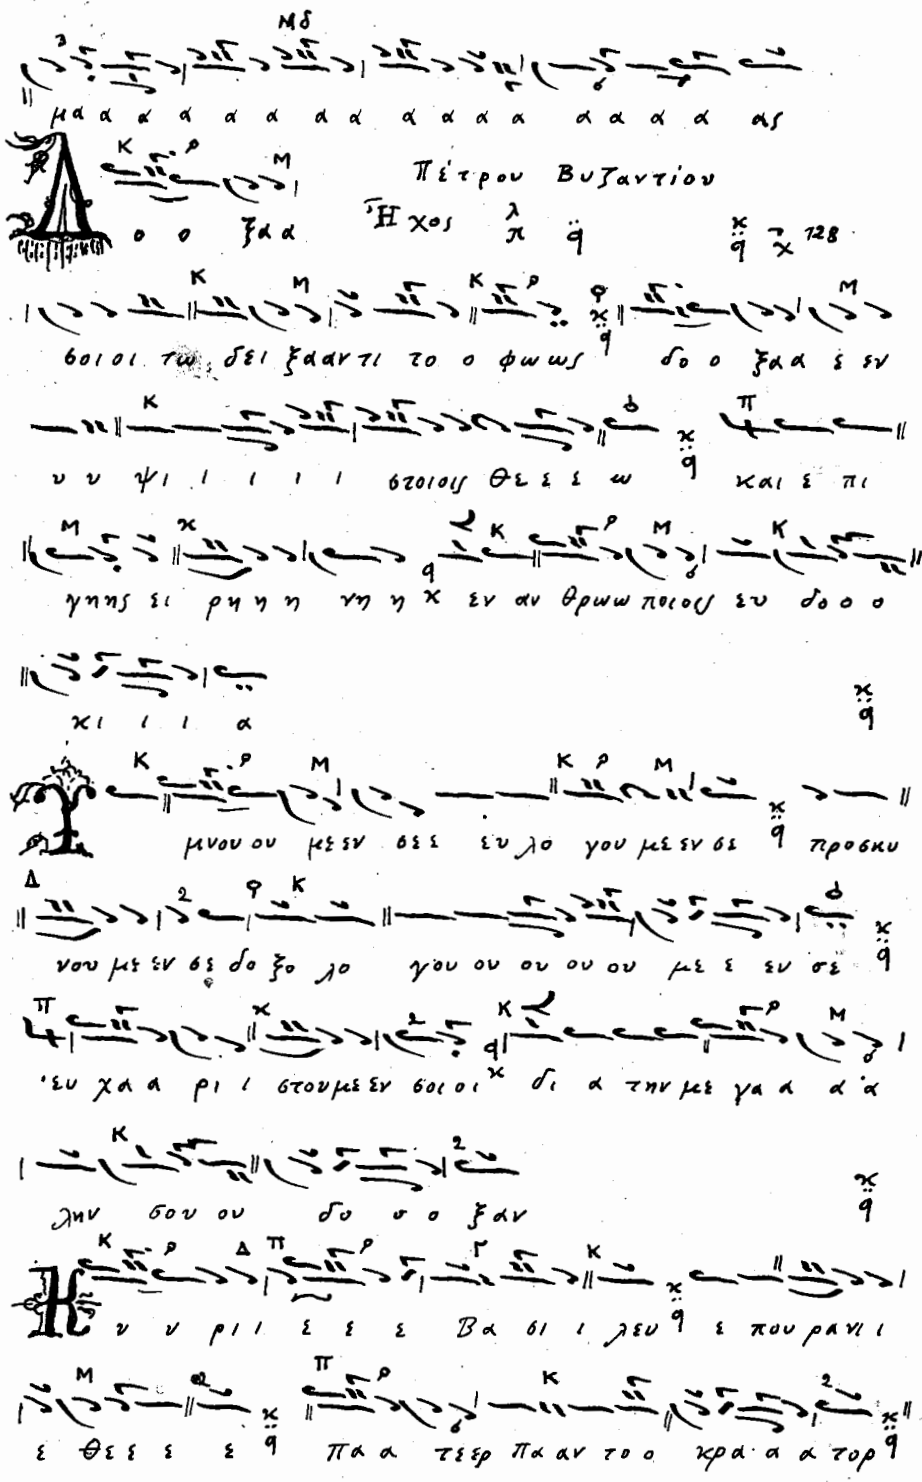 μα α α α α α α α α α α α α α α ας
Πέτρου Βυζαντίου
Δ ο ο ξα α Ἦχος λ π q 128
σοι οι τω δει ξα αν τι το ο φω ως δο ο ξα α ε εν
υ υ ψι ι ι ι ι στοι οις θε ε ε ω και ε πι
γη ης ει ρη η η νη η εν αν θρω ω ποι οις ευ δο ο ο
κι ι ι α
μνου ου με εν σε ε ευ λο γου με εν σε προσκυ
νου με εν σε δο ξο λο γου ου ου ου ου με ε εν σε
ευ χα α ρι ι στου με εν σοι οι δι α την με γα α α α
λην σου ου δο ο ο ξαν
Κ υ υ ρι ι ε ε ε Βα σι ι λευ ε που ρα νι ι
ε θε ε ε ε πα α τε ερ πα αν το ο κρα α α τορ